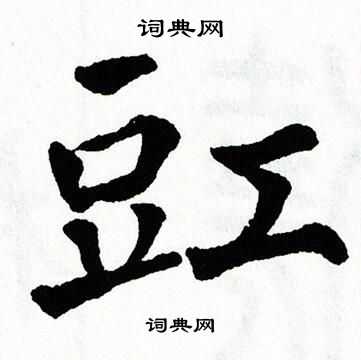 词典网
豇
词典网